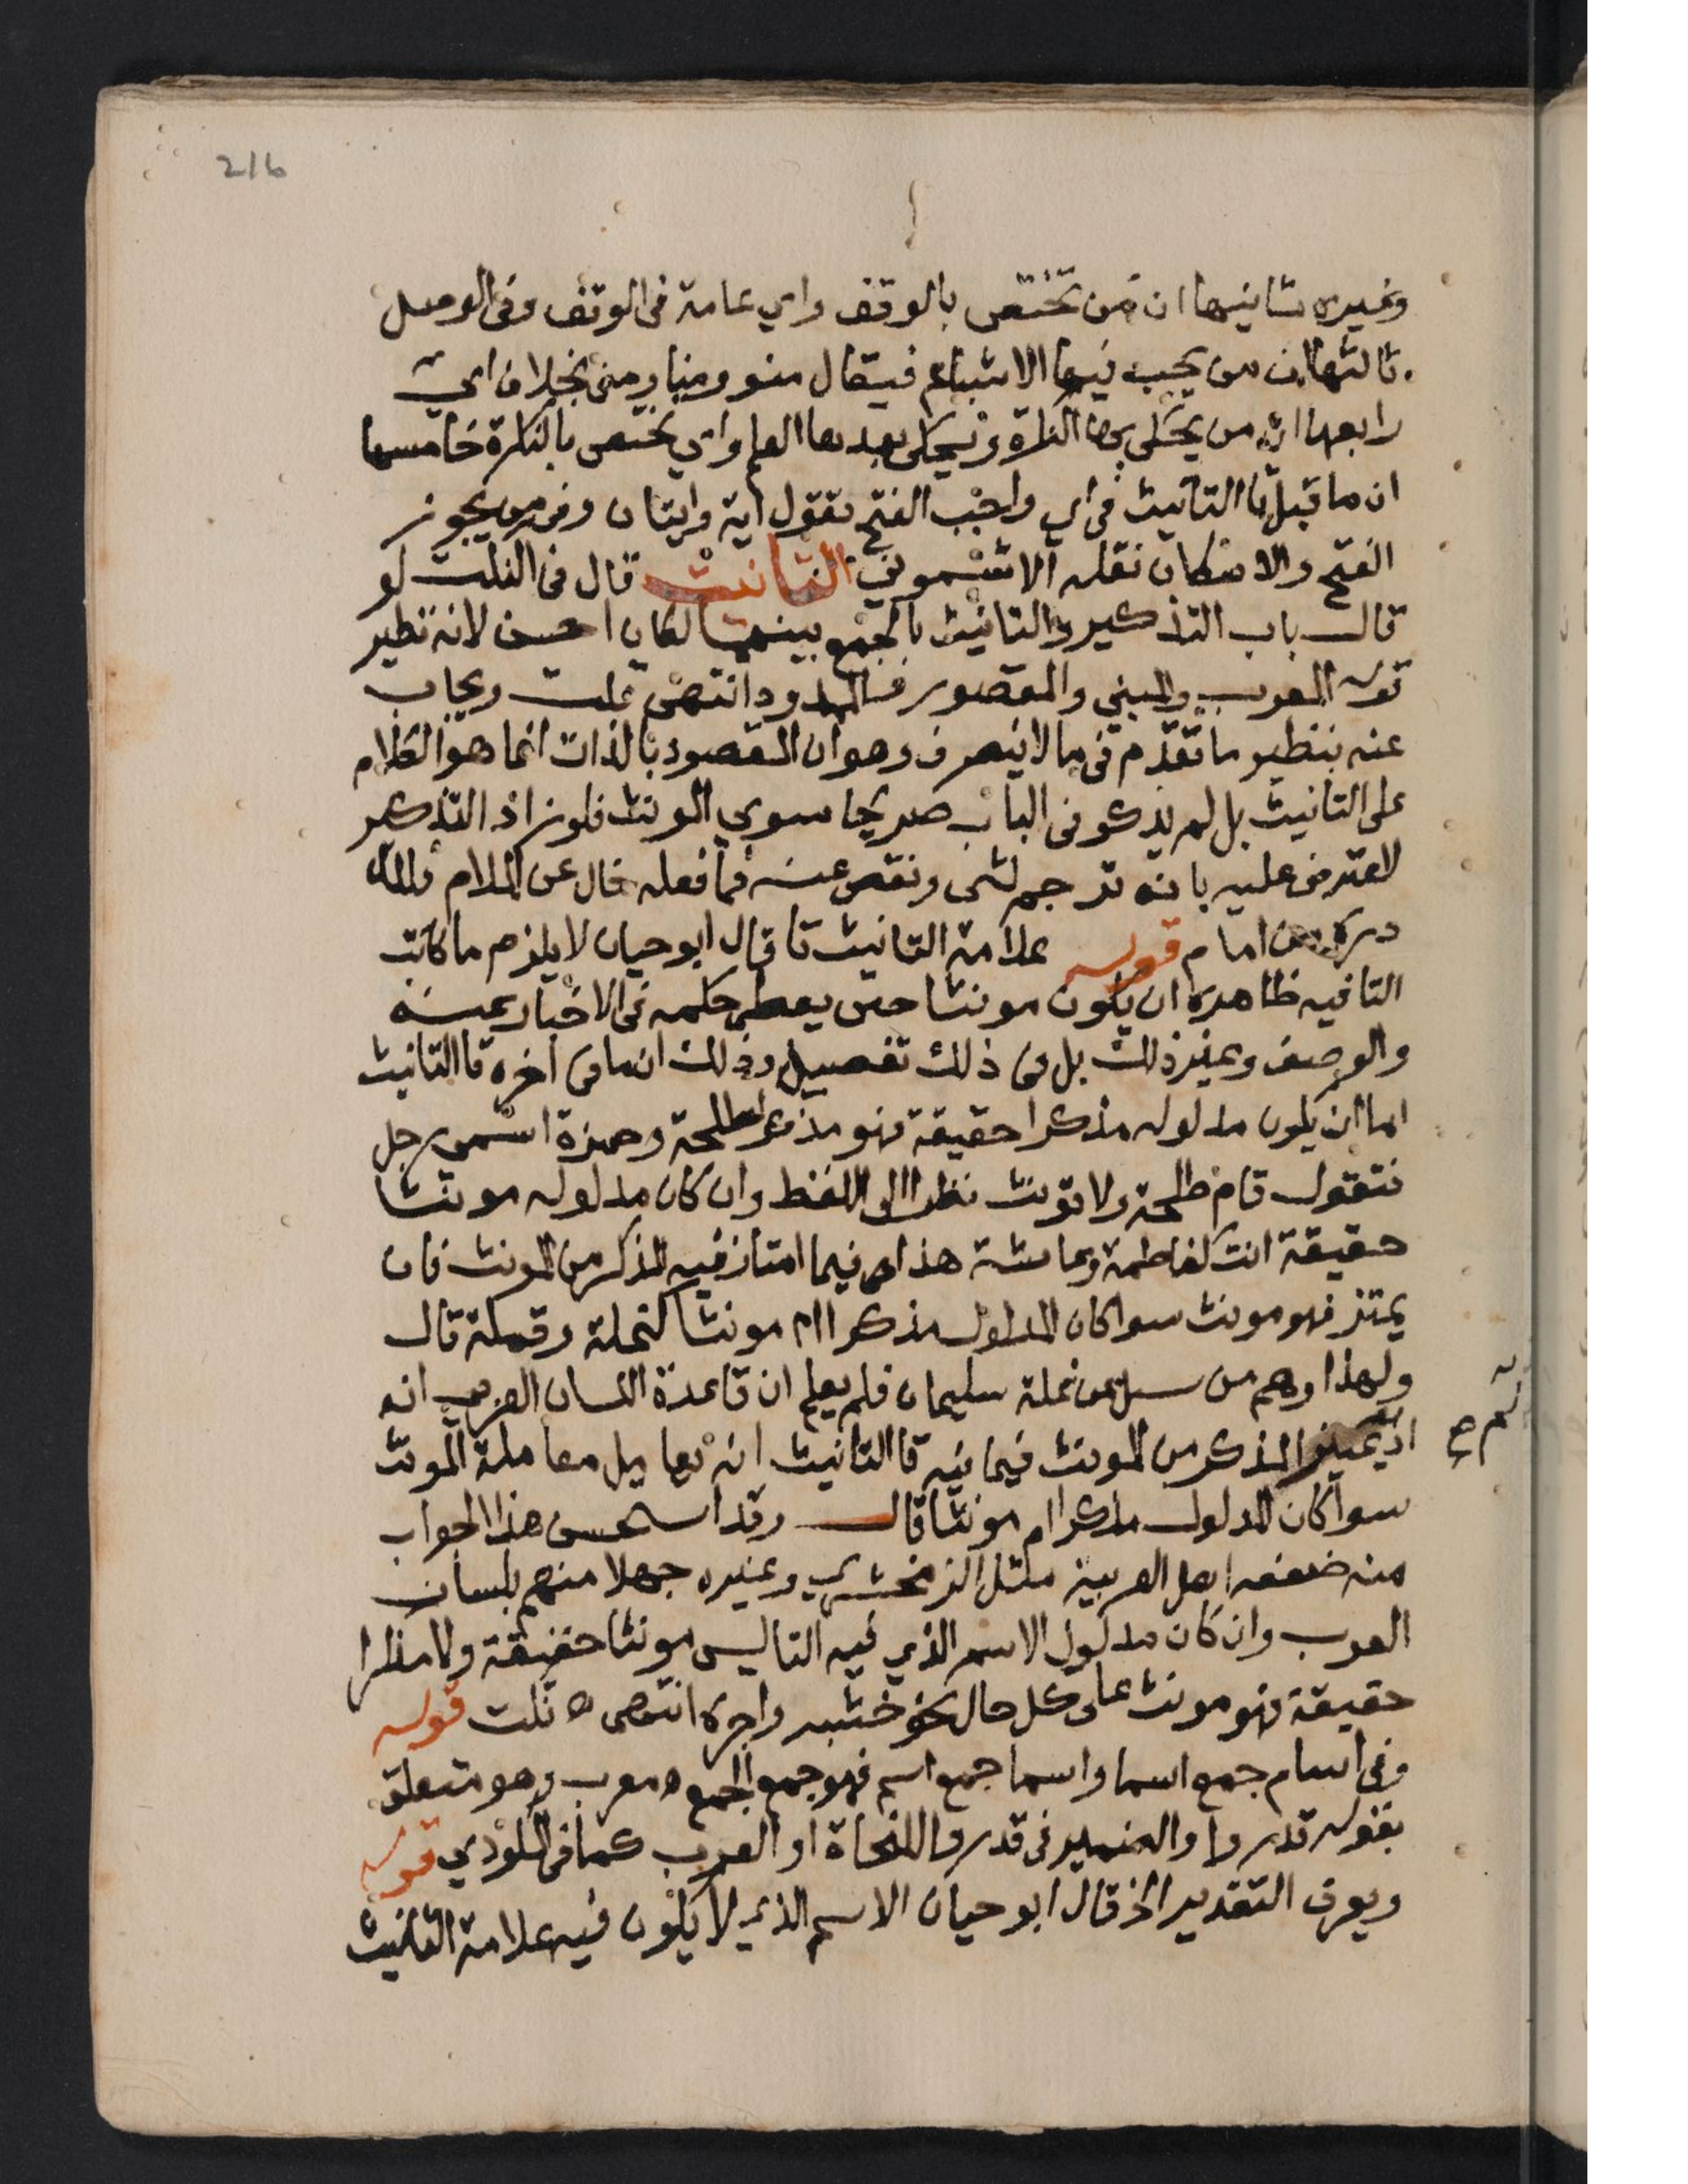 216
وغيره ثانيها ان من تختص بالوقف واي عامة في الوقف وفي الوصل
ثالثها ان من يجب فيها الاشباع فيقال منو ومنا ومني بخلاف اي
رابعها ان من يحكى بها النكرة ويحكى بعدها العلم واي يختص بالنكرة خامسها
ان ما قبل تا التانيث في اي واجب الفتح تقول اية وايتان وفي من يجوز
الفتح والاسكان نقله الاشموني التانيث قال في النكت لو
قال باب التذكير والتانيث بالجمع بينهما لكان احسن لانه نظير
قوله المعرب والمبني والمقصور والممدود انتهى قلت ويجاب
عنه بنظير ما تقدم في ما لا ينصرف وهو ان المقصود بالذات انما هو الكلام
على التانيث بل لم يذكر في الباب صريحا سوى المونث فلو زاد التذكير
لاعترض عليه بانه ترجم لشي ونقص عنه فما فعله خال عن الملام ولله
دره من امام قوله علامة التانيث تا قال ابو حيان لا يلزم ما كانت
التا فيه ظاهرة ان يكون مونثا حتى يعطى حكمه في الاخبار عنه
والوصف وغير ذلك بل في ذلك تفصيل وذلك ان ما في اخره تا التانيث
اما ان يكون مدلوله مذكرا حقيقة فهو مذكر كطلحة وحمزة اسمي رجل
فتقول قام طلحة ولا تونث نظرا الى اللفظ وان كان مدلوله مونثا
حقيقة انث كفاطمة وعائشة هذا في فيما امتاز فيه المذكر من المونث فان
يمتز فهو مونث سوا كان المدلول مذكرا ام مونثا كنملة وقملة قال
ولهذا وهم من سئل عن نملة سليمان فلم يعلم ان قاعدة اللسان العربي انه
اذ يميز المذكر من المونث فيما فيه تا التانيث انه يعامل معاملة المونث
لم صح
سوا كان المدلول مذكرا ام مونثا قال وقد استحسن هذا الجواب
منه ضعفه اهل العربية مثل الزمخشري وغيره جهلا منهم بلسان
العرب وان كان مدلول الاسم الذي فيه التا ليس مونثا حقيقة ولا مذكرا
حقيقة فهو مونث على كل حال نحو خشبه واجرة انتهى ه قلت قوله
وفي اسام جمع اسما واسما جمع اسم فهو جمع الجمع ه معرب وهو متعلق
بقوله قدروا والضمير في قدروا للنحاة او العرب كما في المكودي قوله
ويعرف التقدير الخ قال ابو حيان الاسم الذي لا يكون فيه علامة التانيث